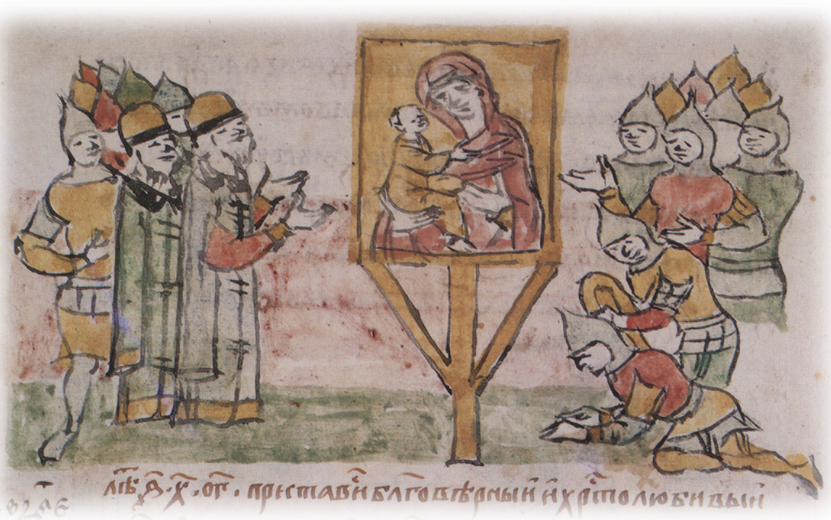 лѣт҇ ҂ѕ҃ · х҃ · ог҃ · престави҇ бл҃говѣрныи и хр҇толюбивыи